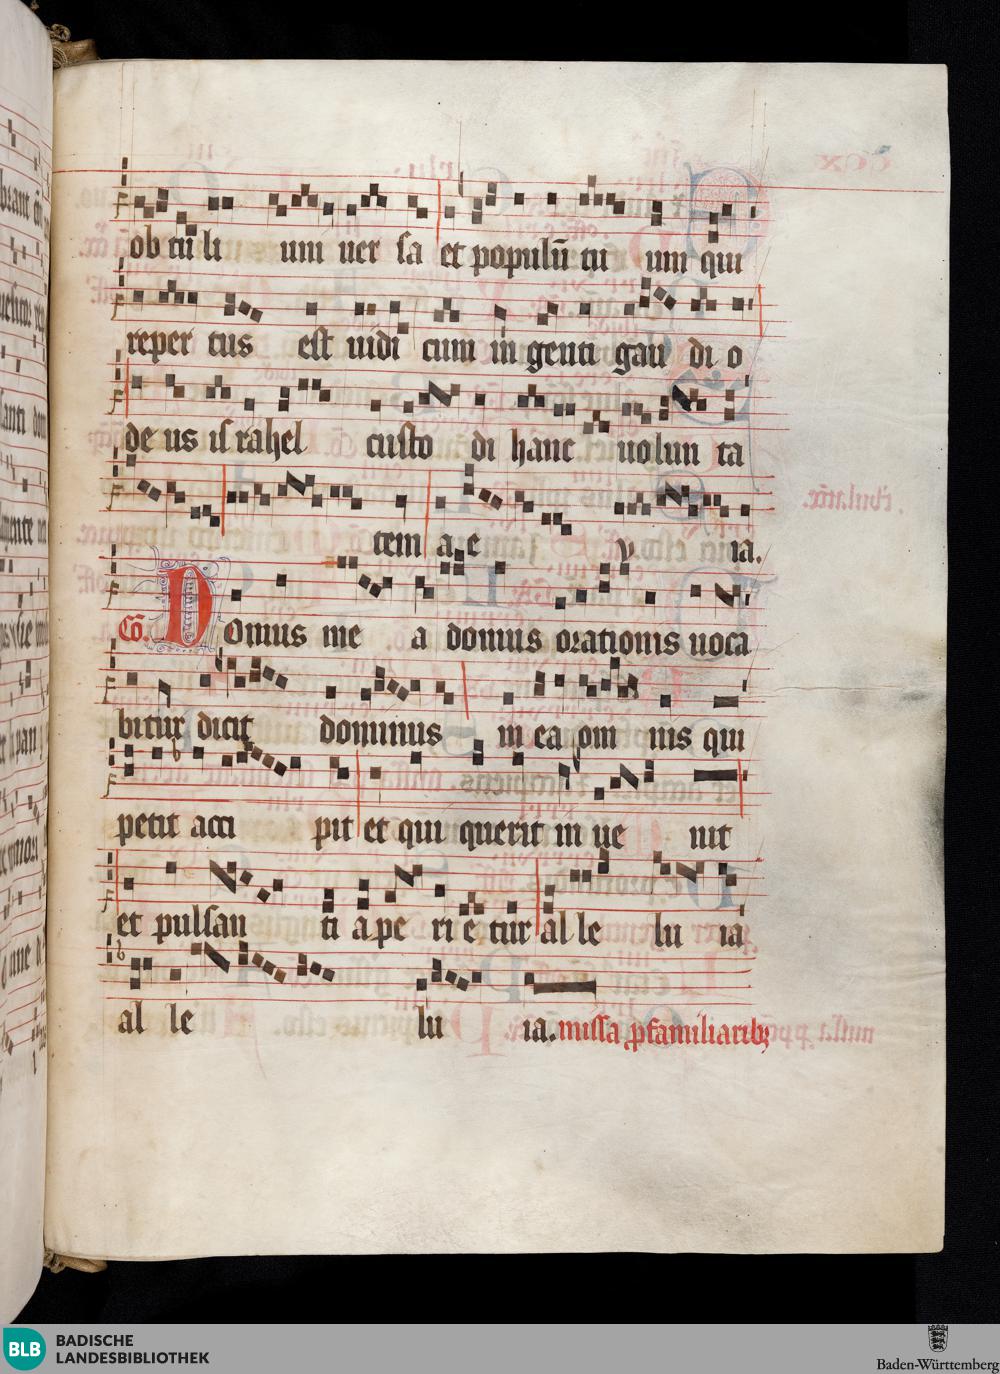 ob tu li uni uer sa et populū tu um qui
reper tus est uidi cum in genti gau di o
de us is rahel custo di hanc uolun ta
tem a e y. ia.
Cō. Domus me a domus orationis uoca
bitur dicit dominus in ea om nis qui
petit acci pit et qui querit in ue nit
et pulsan ti a pe ri e tur al le lu ia
al le lu ia. missa p familiaribꝫ
BLB BADISCHE
LANDESBIBLIOTHEK
Baden-Württemberg